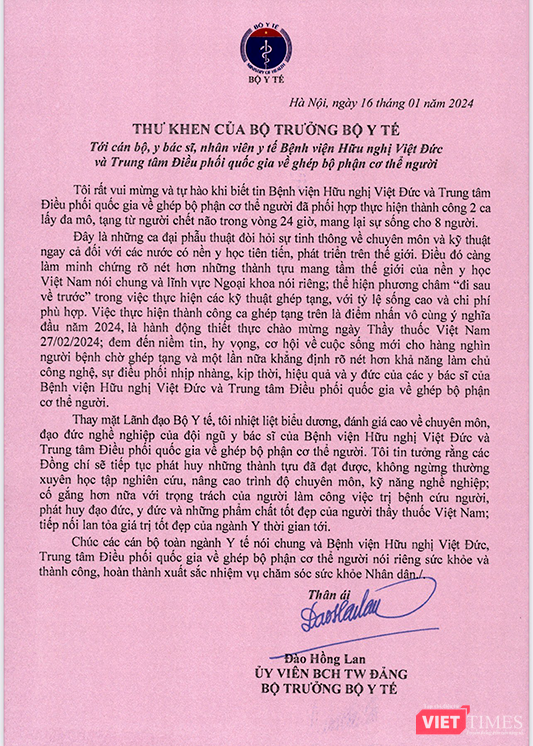 BỘ Y TẾ
MINISTRY OF HEALTH
BỘ Y TẾ
Hà Nội, ngày 16 tháng 01 năm 2024
THƯ KHEN CỦA BỘ TRƯỞNG BỘ Y TẾ
Tới cán bộ, y bác sĩ, nhân viên y tế Bệnh viện Hữu nghị Việt Đức
và Trung tâm Điều phối quốc gia về ghép bộ phận cơ thể người
Tôi rất vui mừng và tự hào khi biết tin Bệnh viện Hữu nghị Việt Đức và Trung tâm
Điều phối quốc gia về ghép bộ phận cơ thể người đã phối hợp thực hiện thành công 2 ca
lấy đa mô, tạng từ người chết não trong vòng 24 giờ, mang lại sự sống cho 8 người.
Đây là những ca đại phẫu thuật đòi hỏi sự tinh thông về chuyên môn và kỹ thuật
ngay cả đối với các nước có nền y học tiên tiến, phát triển trên thế giới. Điều đó càng
làm minh chứng rõ nét hơn những thành tựu mang tầm thế giới của nền y học
Việt Nam nói chung và lĩnh vực Ngoại khoa nói riêng; thể hiện phương châm “đi sau
về trước” trong việc thực hiện các kỹ thuật ghép tạng, với tỷ lệ sống cao và chi phí
phù hợp. Việc thực hiện thành công ca ghép tạng trên là điểm nhấn vô cùng ý nghĩa
đầu năm 2024, là hành động thiết thực chào mừng ngày Thầy thuốc Việt Nam
27/02/2024; đem đến niềm tin, hy vọng, cơ hội về cuộc sống mới cho hàng nghìn
người bệnh chờ ghép tạng và một lần nữa khẳng định rõ nét hơn khả năng làm chủ
công nghệ, sự điều phối nhịp nhàng, kịp thời, hiệu quả và y đức của các y bác sĩ của
Bệnh viện Hữu nghị Việt Đức và Trung tâm Điều phối quốc gia về ghép bộ phận
cơ thể người.
Thay mặt Lãnh đạo Bộ Y tế, tôi nhiệt liệt biểu dương, đánh giá cao về chuyên môn,
đạo đức nghề nghiệp của đội ngũ y bác sĩ của Bệnh viện Hữu nghị Việt Đức và
Trung tâm Điều phối quốc gia về ghép bộ phận cơ thể người. Tôi tin tưởng rằng các
Đồng chí sẽ tiếp tục phát huy những thành tựu đã đạt được, không ngừng thường
xuyên học tập nghiên cứu, nâng cao trình độ chuyên môn, kỹ năng nghề nghiệp;
cố gắng hơn nữa với trọng trách của người làm công việc trị bệnh cứu người,
phát huy đạo đức, y đức và những phẩm chất tốt đẹp của người thầy thuốc Việt Nam;
tiếp nối lan tỏa giá trị tốt đẹp của ngành Y thời gian tới.
Chúc các cán bộ toàn ngành Y tế nói chung và Bệnh viện Hữu nghị Việt Đức,
Trung tâm Điều phối quốc gia về ghép bộ phận cơ thể người nói riêng sức khỏe và
thành công, hoàn thành xuất sắc nhiệm vụ chăm sóc sức khỏe Nhân dân./.
Thân ái
Đào Hồng Lan
ỦY VIÊN BCH TW ĐẢNG
BỘ TRƯỞNG BỘ Y TẾ
VIETTIMES